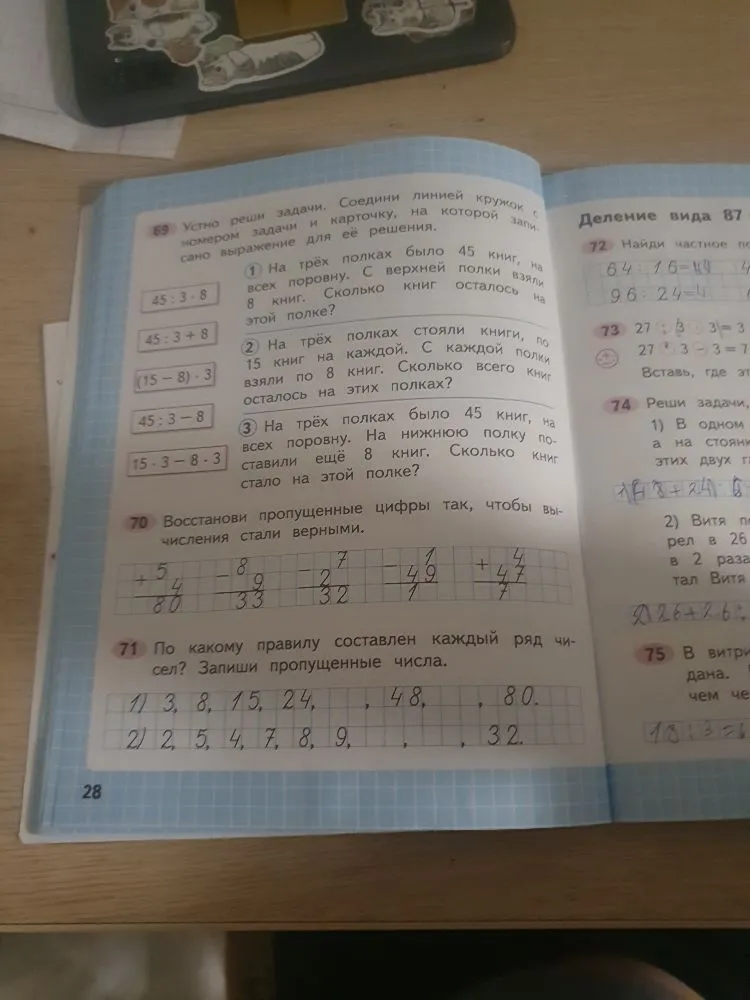 69 Устно реши задачи. Соедини линией кружок с
номером задачи и карточку, на которой запи-
сано выражение для её решения.
45 : 3 · 8
45 : 3 + 8
(15 − 8) · 3
45 : 3 − 8
15 · 3 − 8 · 3
1 На трёх полках было 45 книг, на
всех поровну. С верхней полки взяли
8 книг. Сколько книг осталось на
этой полке?
2 На трёх полках стояли книги, по
15 книг на каждой. С каждой полки
взяли по 8 книг. Сколько всего книг
осталось на этих полках?
3 На трёх полках было 45 книг, на
всех поровну. На нижнюю полку по-
ставили ещё 8 книг. Сколько книг
стало на этой полке?
70 Восстанови пропущенные цифры так, чтобы вы-
числения стали верными.
+ 5 − 8 − 7 − 1 + 4
4 9 2 49 47
80 33 32 1 7
71 По какому правилу составлен каждый ряд чи-
сел? Запиши пропущенные числа.
1) 3, 8, 15, 24, , 48, , 80.
2) 2, 5, 4, 7, 8, 9, , , 32.
28
Деление вида 87
72 Найди частное
64 : 16 = 4
96 : 24 = 4
73 27 : 3 · 3 = 3
27 · 3 − 3 = 7
Вставь, где
74 Реши задачи,
1) В одном
а на стоян
этих двух
2) Витя
рел в 26
в 2 раза
тал Витя
2) 26 + 26 :
75 В витри
дана.
чем че